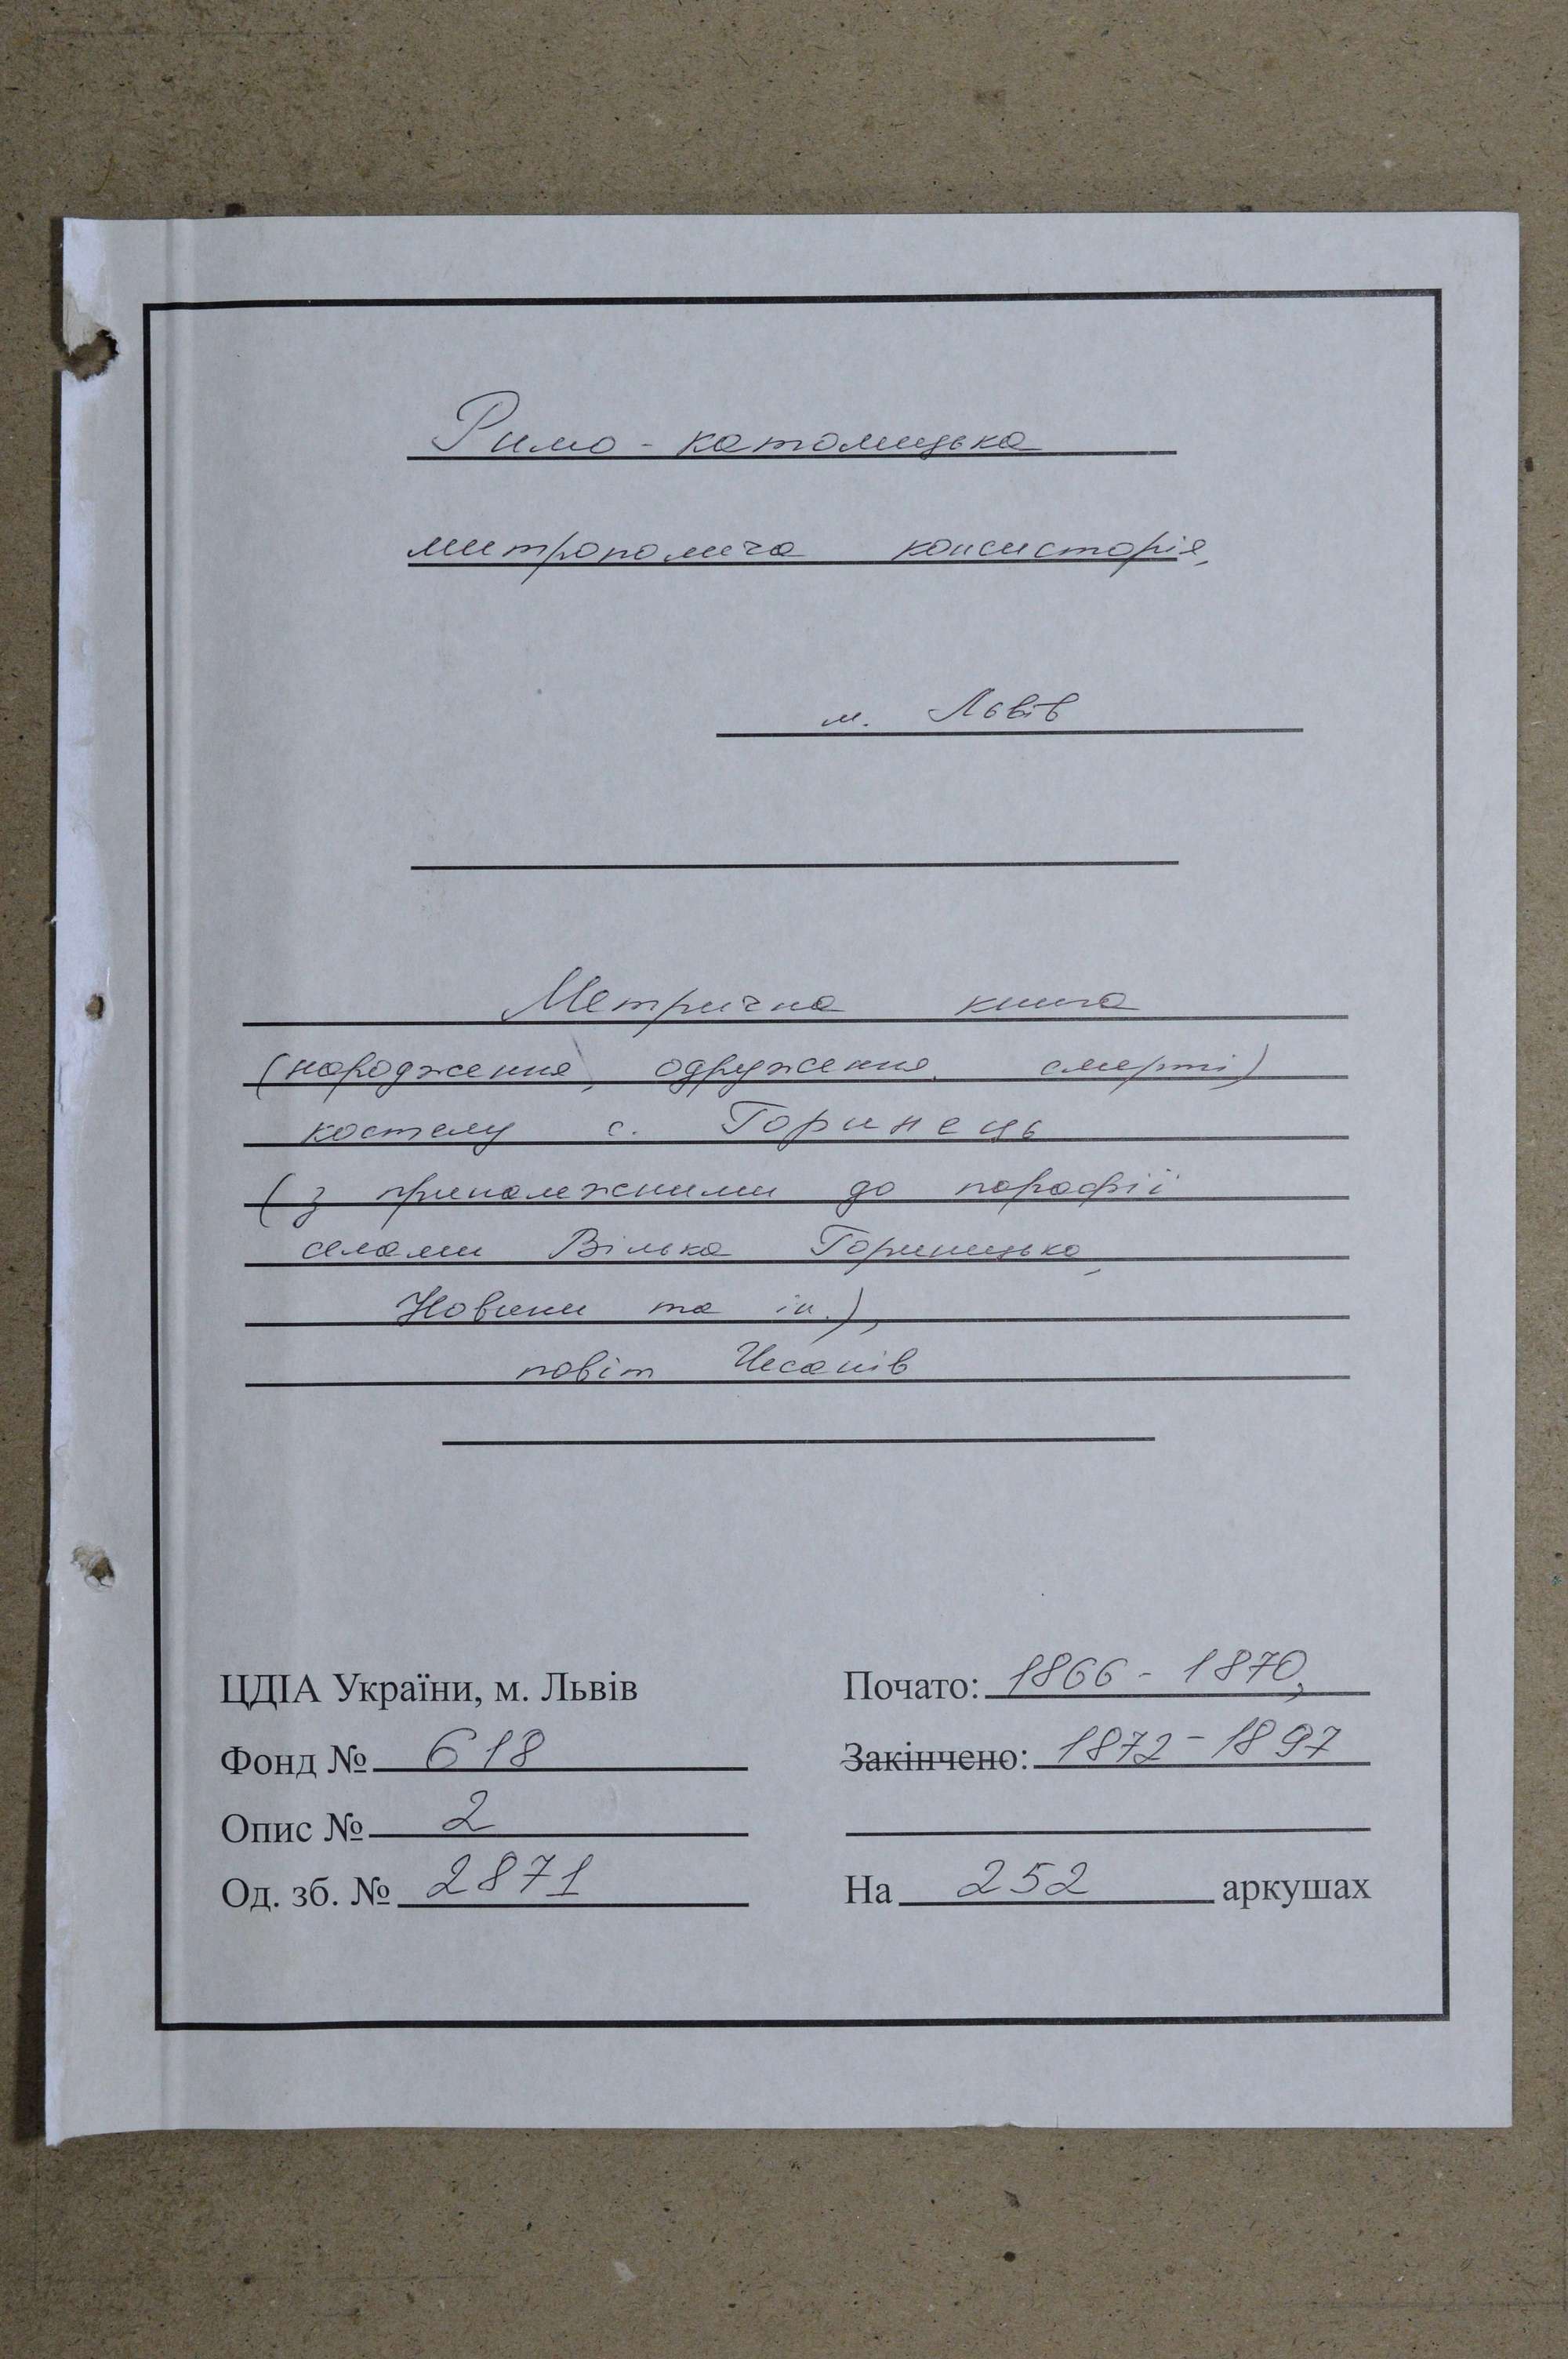 Римо-католицька
митрополича консисторія,
м. Львів
Метрична книга
(народження, одруження, смерті)
костелу с. Горинець
(з приналежними до парафії
селами Вілька Гориницька,
Новини та ін.),
повіт Чесанів
ЦДІА України, м. Львів
Фонд № 618
Опис № 2
Од. зб. № 2871
Почато: 1866 - 1870,
Закінчено: 1872 - 1897
На 252 аркушах